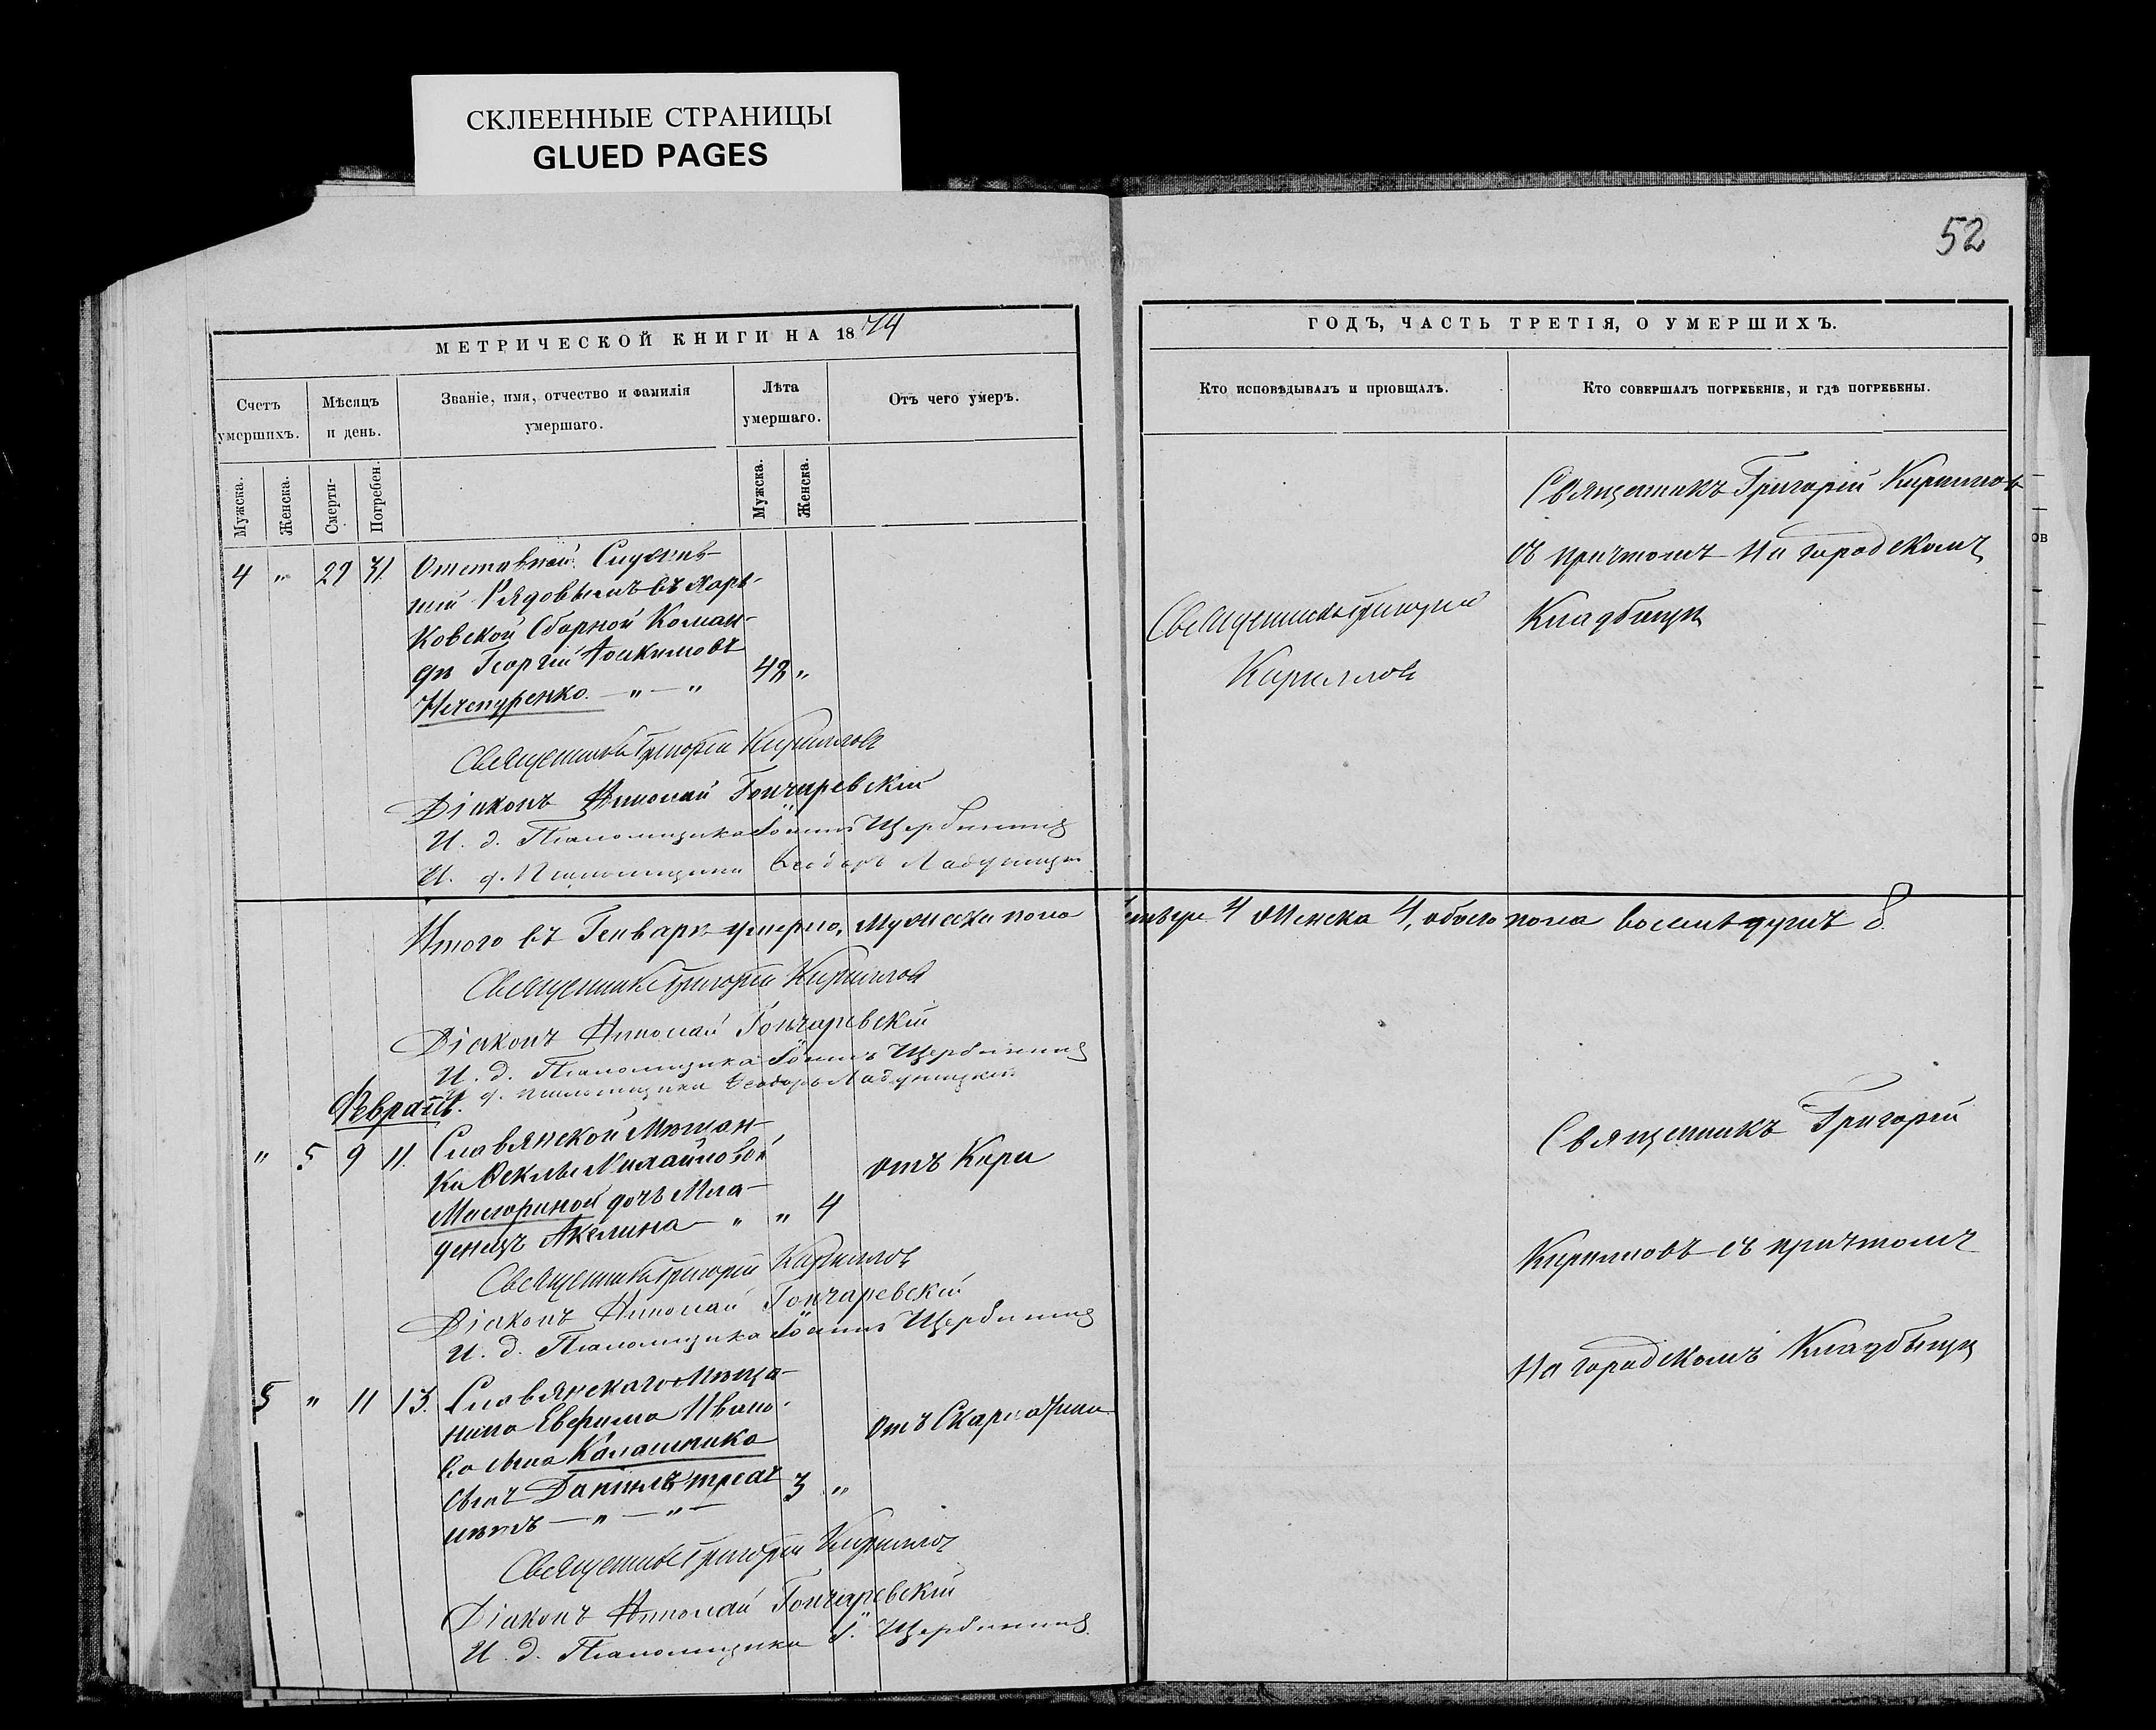 СКЛЕЕННЫЕ СТРАНИЦЫ
GLUED PAGES
52
МЕТРИЧЕСКОЙ КНИГИ НА 1874
Счетъ умершихъ.
Мѣсяцъ и день.
Званіе, имя, отчество и фамилія умершаго.
Лѣта умершаго.
Отъ чего умеръ.
Мужска.
Женска.
Смерти-
Погребен.
Мужска.
Женска.
4 " 29 31. Отставной Служив-
шій Рядовымъ въ Харь-
ковской Сборной Коман-
дѣ Георгій Іоакимовъ
Нечепуренко. — " — " 42 "
Священникъ Григорій Кирилловъ
Діаконъ Николай Гончаревскій
И. д. Псаломщика Іоаннъ Щербина
И. д. Псаломщика Ѳеодоръ
Итого въ Генварѣ умерло, Мужеска пола
Священникъ Григорій Кирилловъ
Діаконъ Николай Гончаревскій
И. д. Псаломщика Іоаннъ Щербина
И. д. Псаломщика Ѳеодоръ
Февраль.
" 5 9 11. Славянской Мѣщан-
ки Ѳеклы Михайловой
дочь Мла-
денецъ Акелина — " " 4
отъ Кори
Священникъ Григорій Кирилловъ
Діаконъ Николай Гончаревскій
И. д. Псаломщика Іоаннъ Щербина
5 " 11 13. Славянскаго Мѣща-
нина Ефрима Ивано-
ва сына Калашника
сынъ Даніилъ трехъ
лѣтъ — " — " — 3 "
отъ Скарлатины
Священникъ Григорій Кирилловъ
Діаконъ Николай Гончаревскій
И. д. Псаломщика І. Щербина
ГОДЪ, ЧАСТЬ ТРЕТІЯ, О УМЕРШИХЪ.
Кто исповѣдывалъ и пріобщалъ.
Кто совершалъ погребеніе, и гдѣ погребены.
Священникъ Григорій
Кирилловъ
Священникъ Григорій Кирилловъ
съ причтомъ на городскомъ
Кладбищѣ
четыре 4 Женска 4, обоего пола восемь душъ 8.
Священникъ Григорій
Кирилловъ съ причтомъ
На городскомъ Кладбищѣ
ов